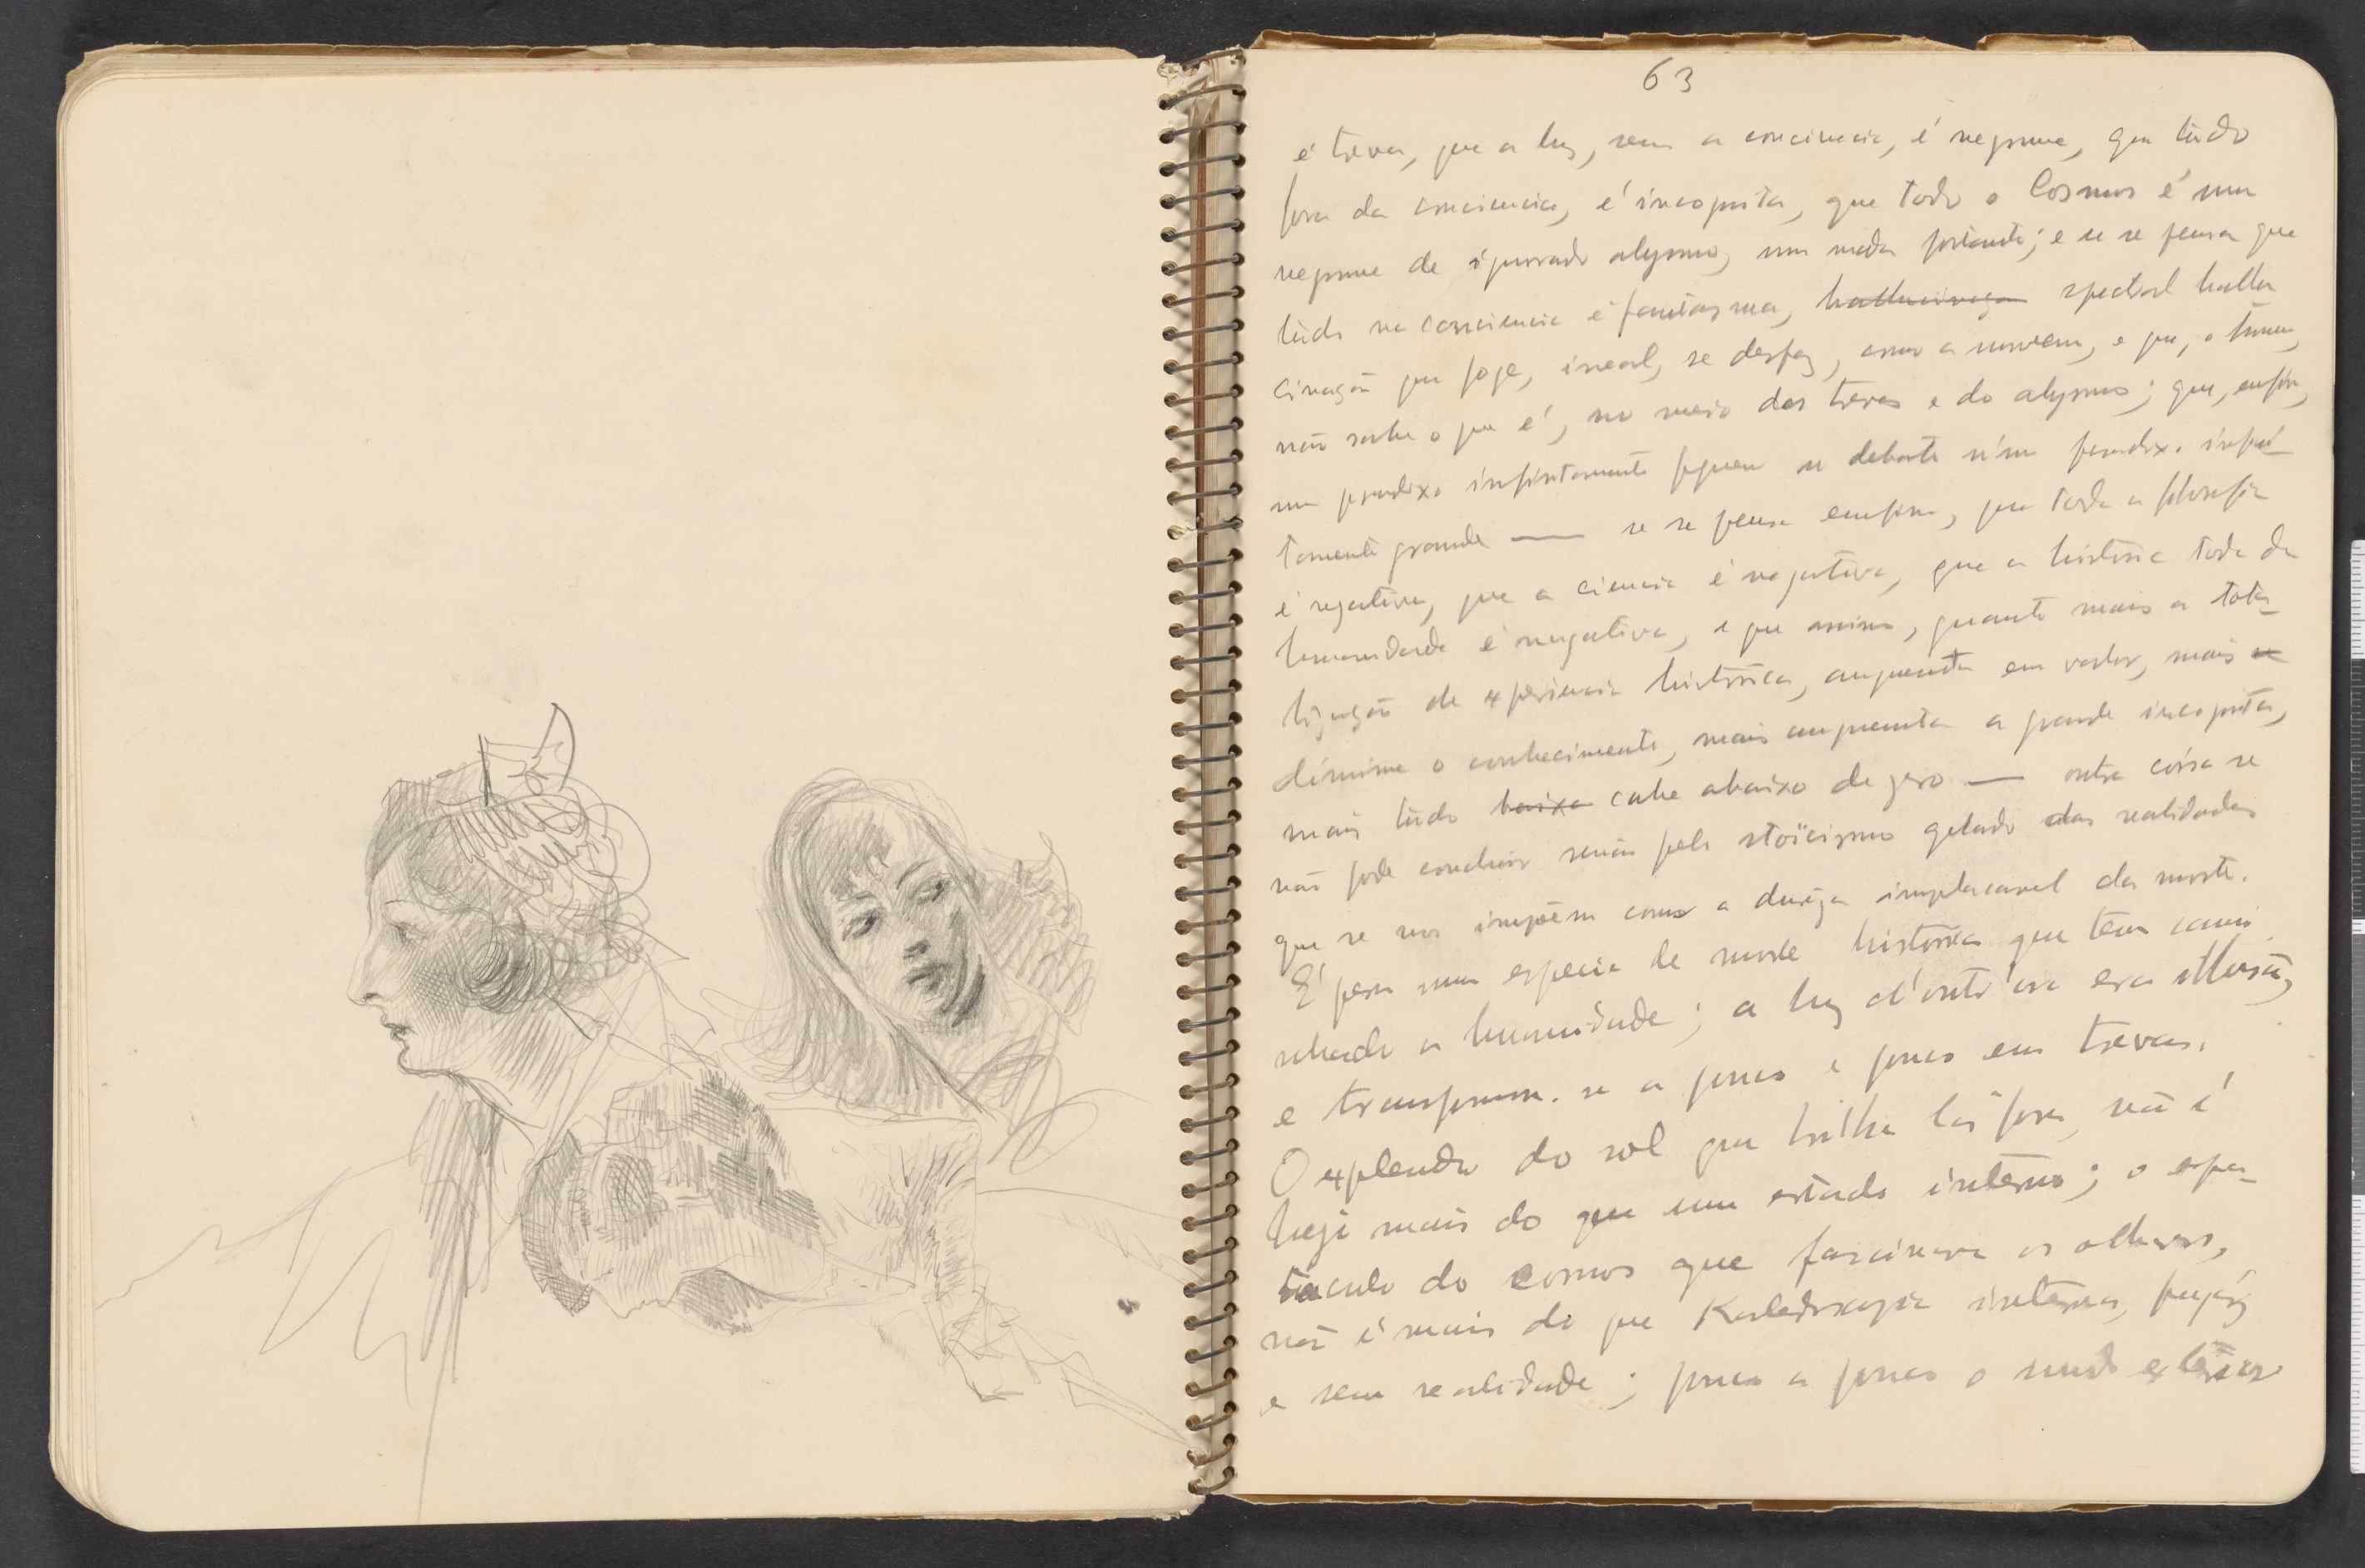 63
é treva, que a luz, sem a conciencia, é negrume, que tudo
fora da conciencia, é incognita, que todo o Cosmos é um
negrume de ignorado abysmo, um nada portanto; e se se pensa que
tudo na consciencia é fantasma, hallucinaça spectral hallu
cinação que foge, ireal, se desfaz, como a nuvem, e que, o
não sabe o que é, no meio das trevas e do abysmo; que, enfim,
um paradoxo infinitamente pequeno se debate n'um paradoxo infini
tamente grande — se se pensa emfim, que toda a filosofia
é negativa, que a ciencia é negativa, que a historia toda da
humanidade é negativa, e que assim, quanto mais a tota-
lização de experiencia historica, augmenta em valor, mais
diminue o conhecimento, mais augmenta a grande incognita,
mais tudo baixa cahe abaixo de zero — outra coisa se
não pode concluir senão pelo stoïcismo gelado das realidades
que se nos impõem como a dureza implacavel da morte.
É pera uma especie de morte historica que tem cami
nhado a humanidade; a luz d'outr'ora era illusão,
e transforma-se a pouco e pouco em trevas.
O explendor do sol que brilha lá fora, não é
hoje mais do que um estado interno; o espe-
taculo do cosmos que fascinava os olhares,
não é mais do que Kaledoscopia interna, fugaz
e sem realidade; pouco a pouco o mundo exterior